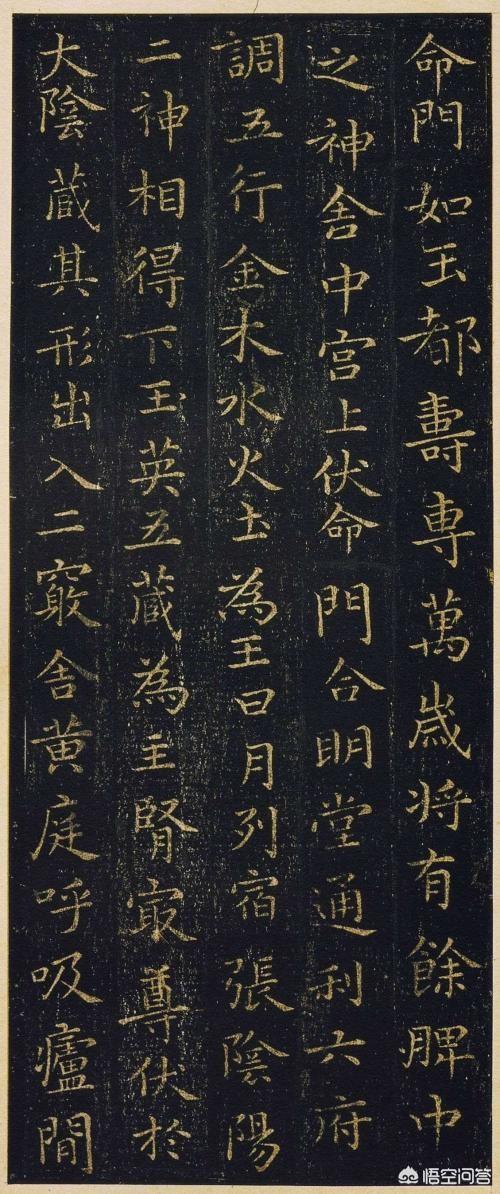 命門如玉都壽専萬歲将有餘脾中
之神舍中宫上伏命門合明堂通利六府
調五行金木水火土為王日月列宿張陰陽
二神相得下玉英五藏為主腎冣尊伏於
大陰藏其形出入二竅舍黄庭呼吸廬間
悟空问答